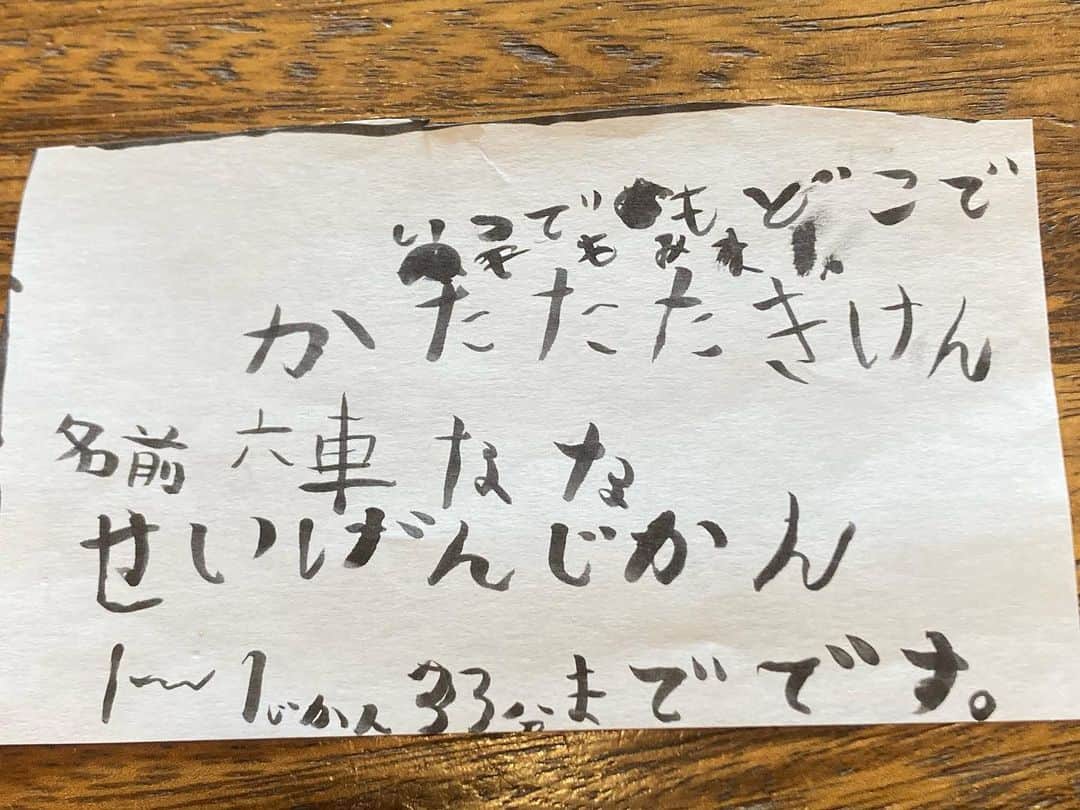 いつでも どこで
も
かたたたきけん
名前 六車なな
せいげんじかん
1〜1じかん33分までです。